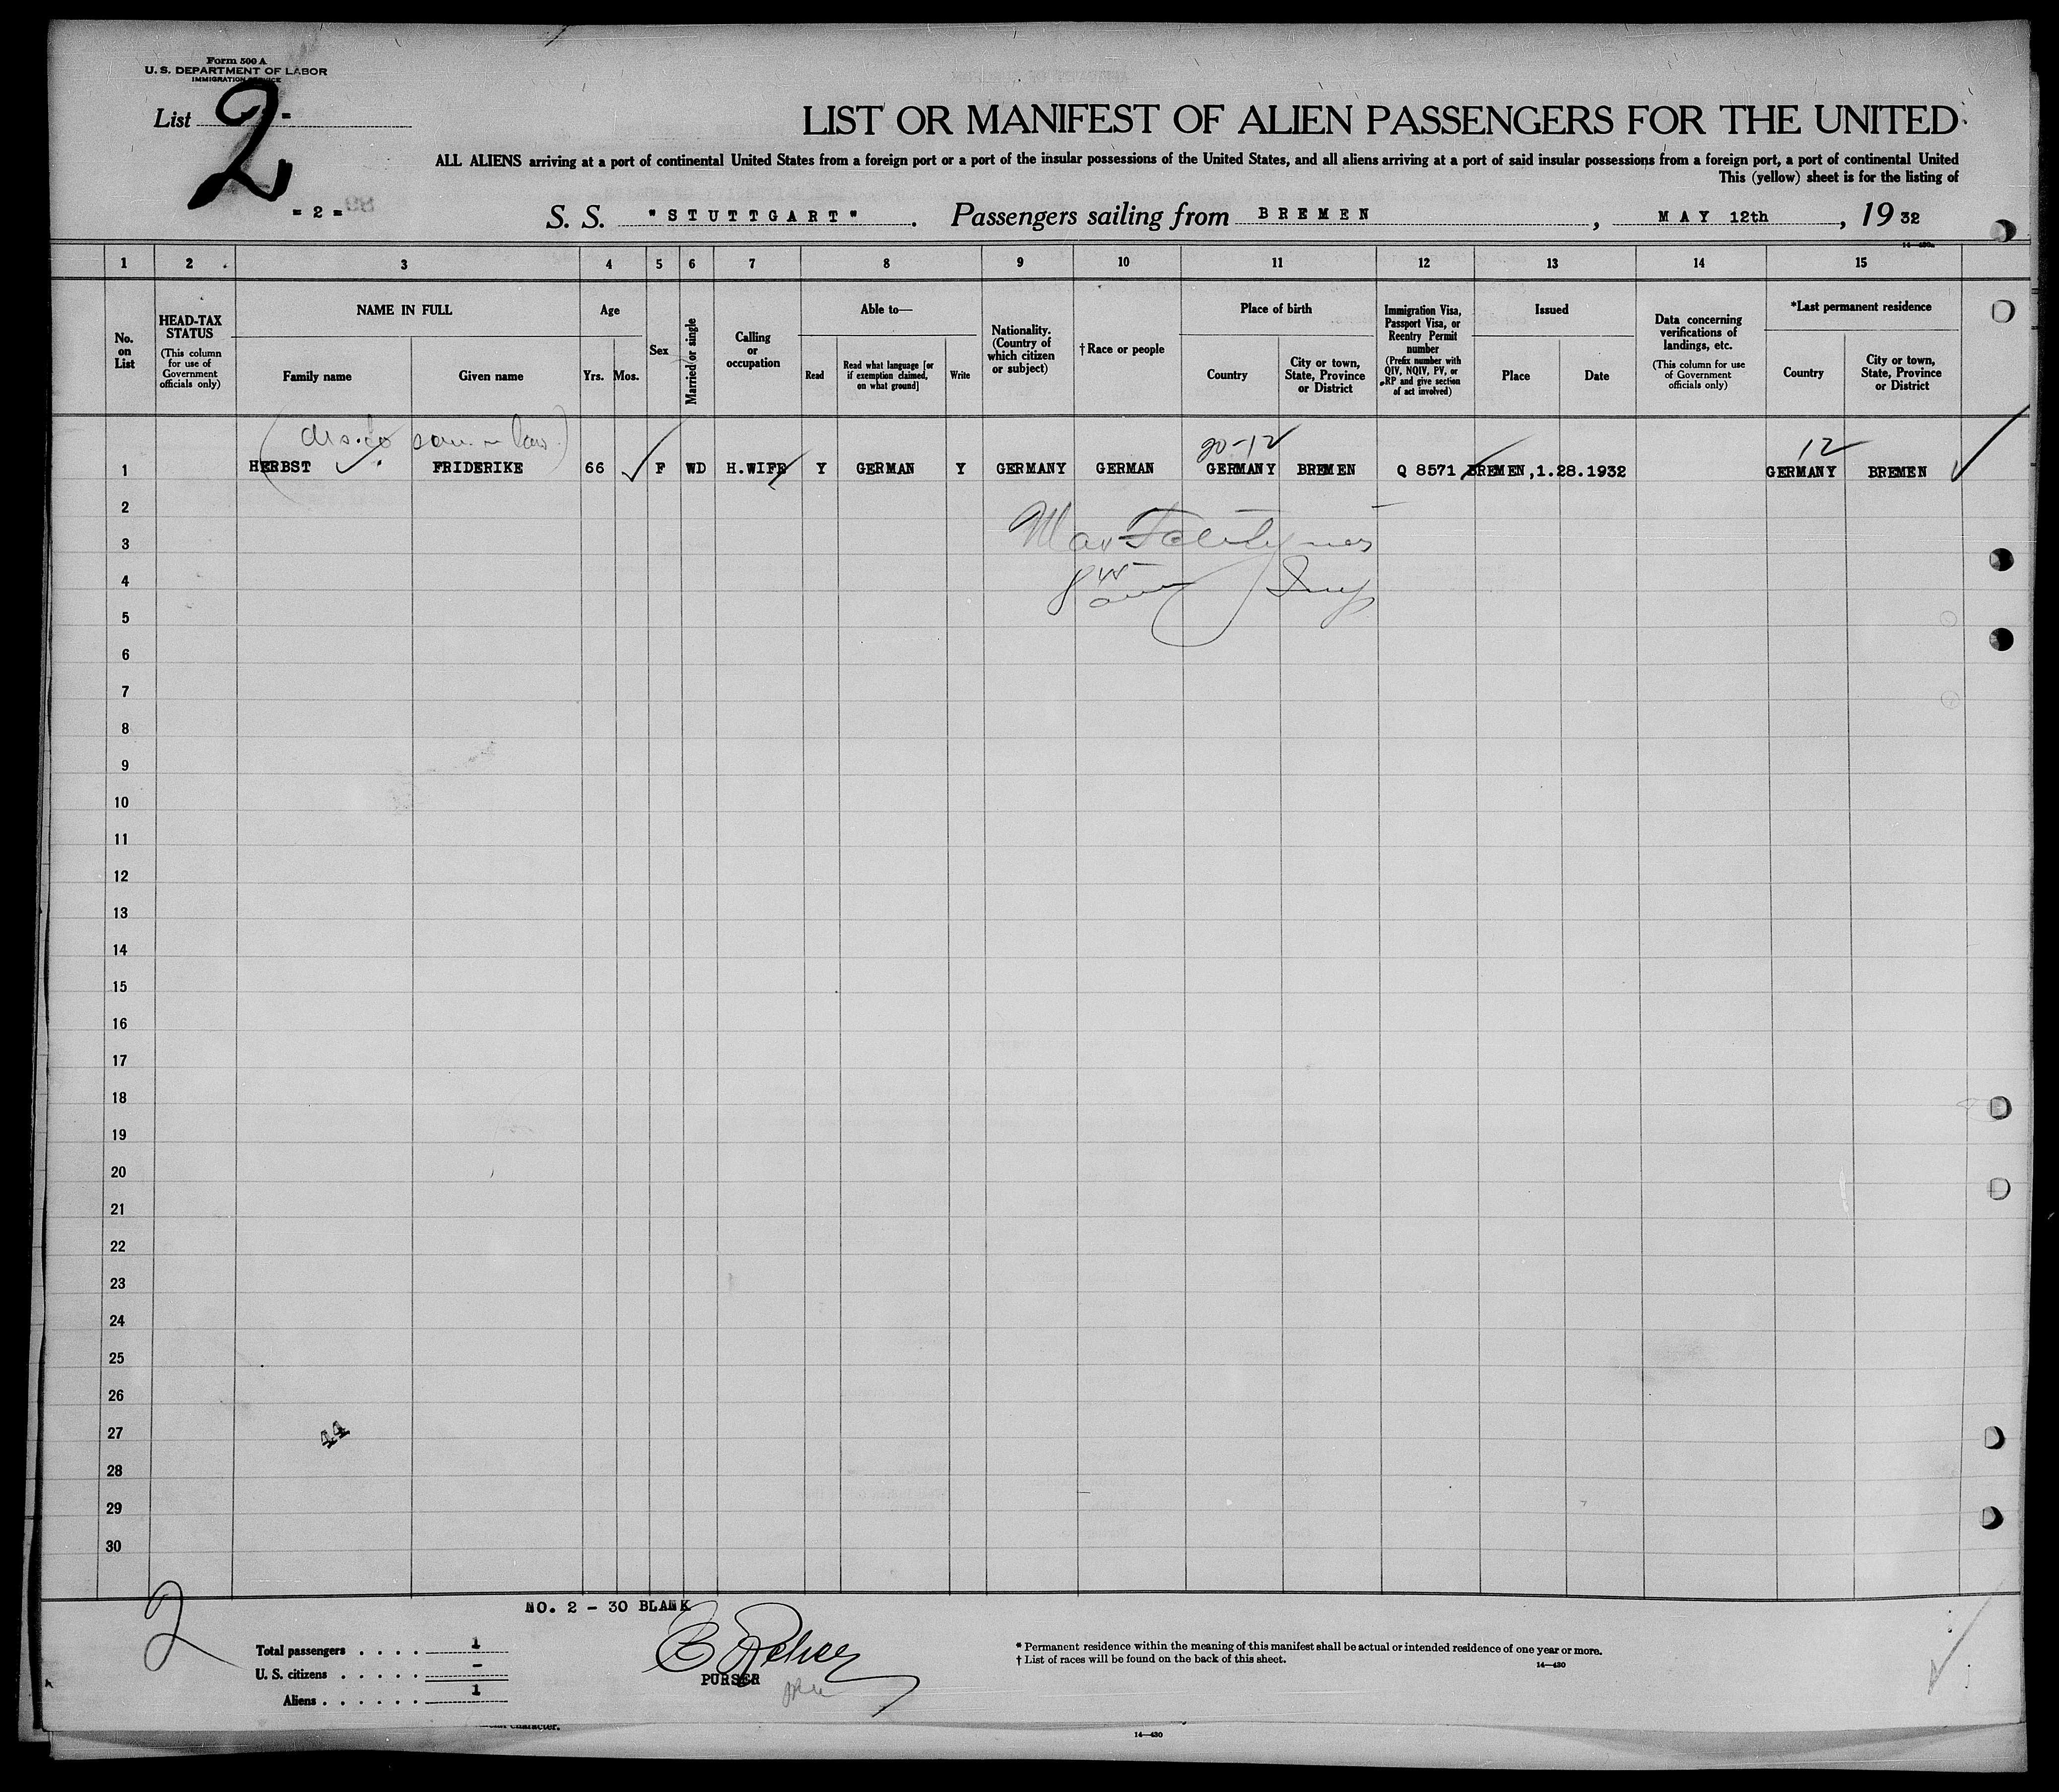 Form 500 A
U. S. DEPARTMENT OF LABOR
IMMIGRATION SERVICE
List 2 -
LIST OR MANIFEST OF ALIEN PASSENGERS FOR THE UNITED
ALL ALIENS arriving at a port of continental United States from a foreign port or a port of the insular possessions of the United States, and all aliens arriving at a port of said insular possessions from a foreign port, a port of continental United
This (yellow) sheet is for the listing of
= 2 =
S. S. "STUTTGART". Passengers sailing from BREMEN, MAY 12th, 19 32
1 2 3 4 5 6 7 8 9 10 11 12 13 14 15
No. on List
HEAD-TAX STATUS (This column for use of Government officials only)
NAME IN FULL
Family name
Given name
Age
Yrs.
Mos.
Sex
Married or single
Calling or occupation
Able to—
Read
Read what language [or if exemption claimed, on what ground]
Write
Nationality. (Country of which citizen or subject)
† Race or people
Place of birth
Country
City or town, State, Province or District
Immigration Visa, Passport Visa, or Reentry Permit number (Prefix number with QIV, NQIV, PV, or RP and give section of act involved)
Issued
Place
Date
Data concerning verifications of landings, etc. (This column for use of Government officials only)
*Last permanent residence
Country
City or town, State, Province or District
20-12
12
1 HERBST FRIDERIKE 66 F WD H.WIFE Y GERMAN Y GERMANY GERMAN GERMANY BREMEN Q 8571 BREMEN, 1.28.1932 GERMANY BREMEN
2
3
4
5
6
7
8
9
10
11
12
13
14
15
16
17
18
19
20
21
22
23
24
25
26
27
44
28
29
30
2
NO. 2 - 30 BLANK
Total passengers . . . . 1
U. S. citizens . . . . . -
Aliens . . . . . . 1
PURSER
* Permanent residence within the meaning of this manifest shall be actual or intended residence of one year or more.
† List of races will be found on the back of this sheet.
14—430
character.
14—430